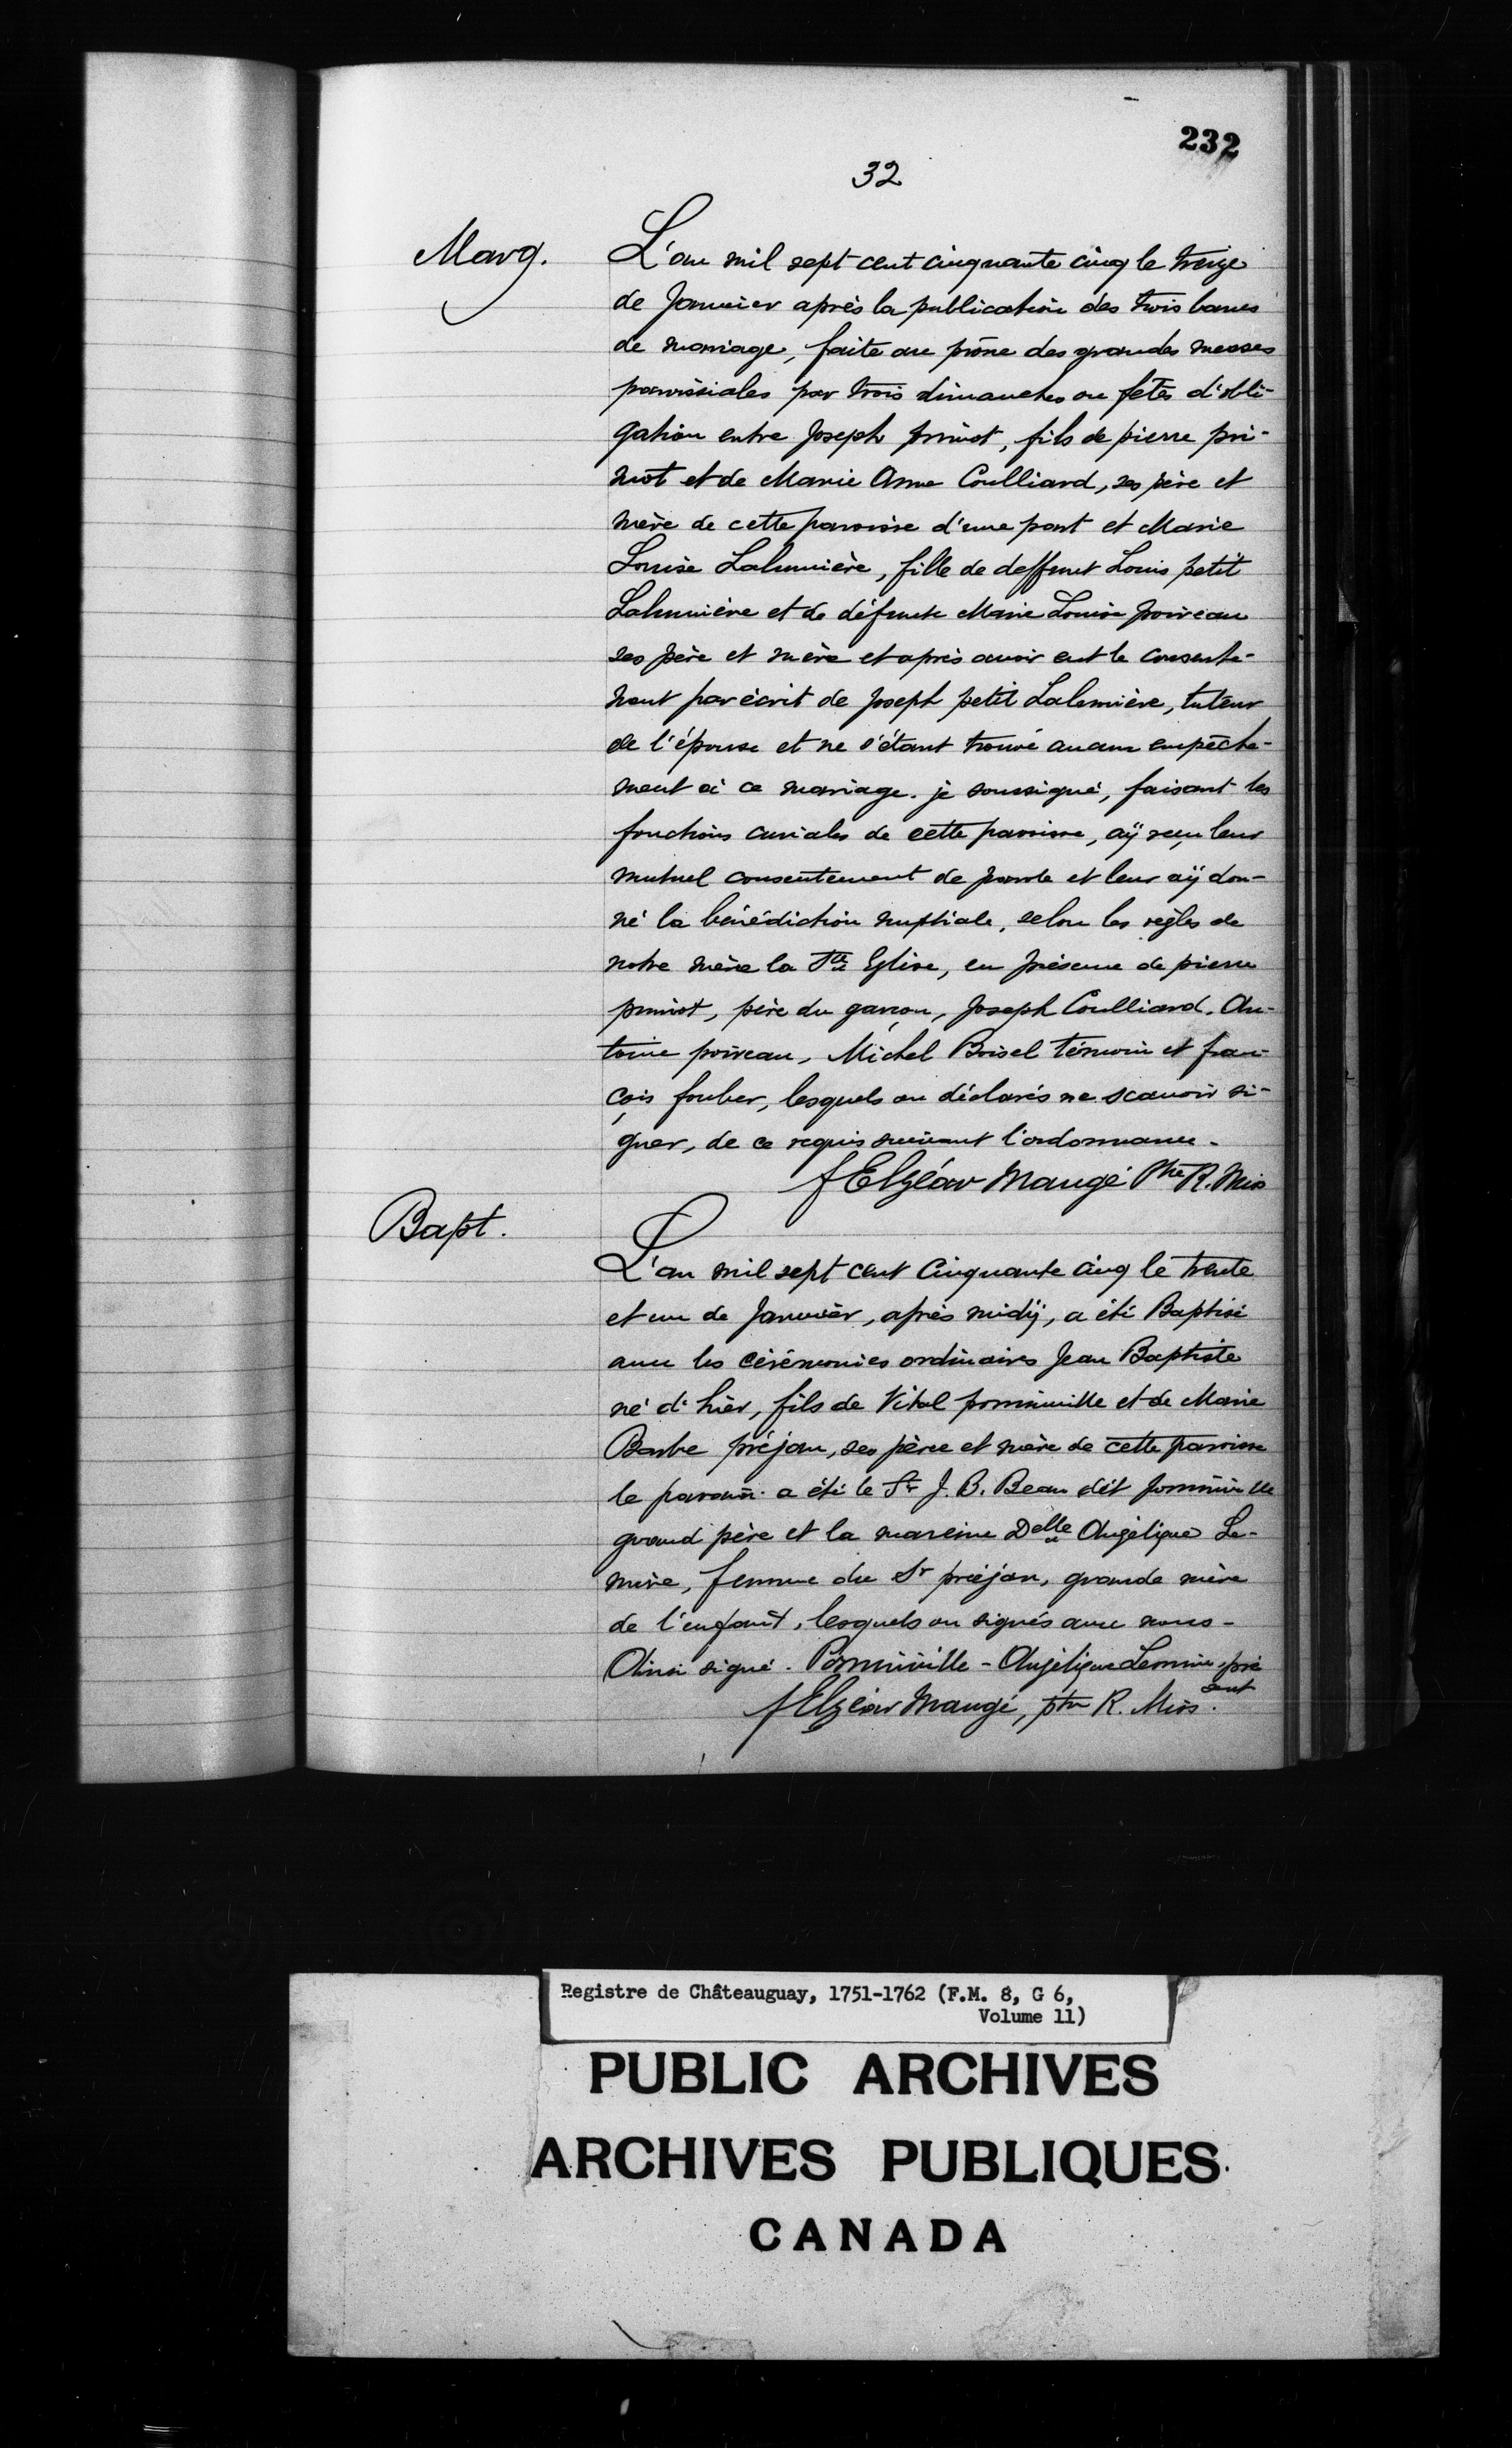 232
32
Marg.
L'an mil sept cent cinquante cinq le treize
de Janvier après la publication des trois bancs
de mariage, faite au prône des grandes messes
paroissiales par trois dimanches ou fêtes d'obli-
gation entre Joseph primot, fils de pierre pri-
mot et de Marie Anne Coulliard, ses père et
mère de cette paroisse d'une part et Marie
Louise Lalumière, fille de deffunt Louis petit
Lalumière et de défunte Marie Louise poireau
ses père et mère et après avoir eut le consente-
ment par écrit de Joseph petit Lalumière, tuteur
de l'épouse et ne s'étant trouvé aucun empêche-
ment à ce mariage. je soussigné, faisant les
fonctions curiales de cette paroisse, aÿ reçu leur
mutuel consentement de parole et leur aÿ don-
né la bénédiction nuptiale, selon les règles de
notre mère la Ste Eglise, en présence de pierre
primot, père du garçon, Joseph Coulliard, An-
toine poireau, Michel Boisel témoin et fran-
çois fouber, lesquels on déclarés ne scavoir si-
gner, de ce requis suivant l'ordonnance.
f Elzéar Maugé Ptre R. Miss
Bapt.
L'an mil sept cent Cinquante cinq le trente
et un de Janvier, après midÿ, a été Baptisé
avec les cérémonies ordinaires Jean Baptiste
né d'hier, fils de Vital pomminville et de Marie
Barbe préjan, ses père et mère de cette paroisse
le parain a été le Sr J. B. Beau dit pomminville
grand père et la mareine Delle Angélique Le-
mire, femme du Sr préjan, grande mère
de l'enfant, lesquels on signés avec nous-
Ainsi signé. Pomminville - Angélique Lemire, pré
sent
f Elzéar Maugé, ptre R. Miss.
Registre de Châteauguay, 1751-1762 (F.M. 8, G 6,
Volume 11)
PUBLIC ARCHIVES
ARCHIVES PUBLIQUES
CANADA